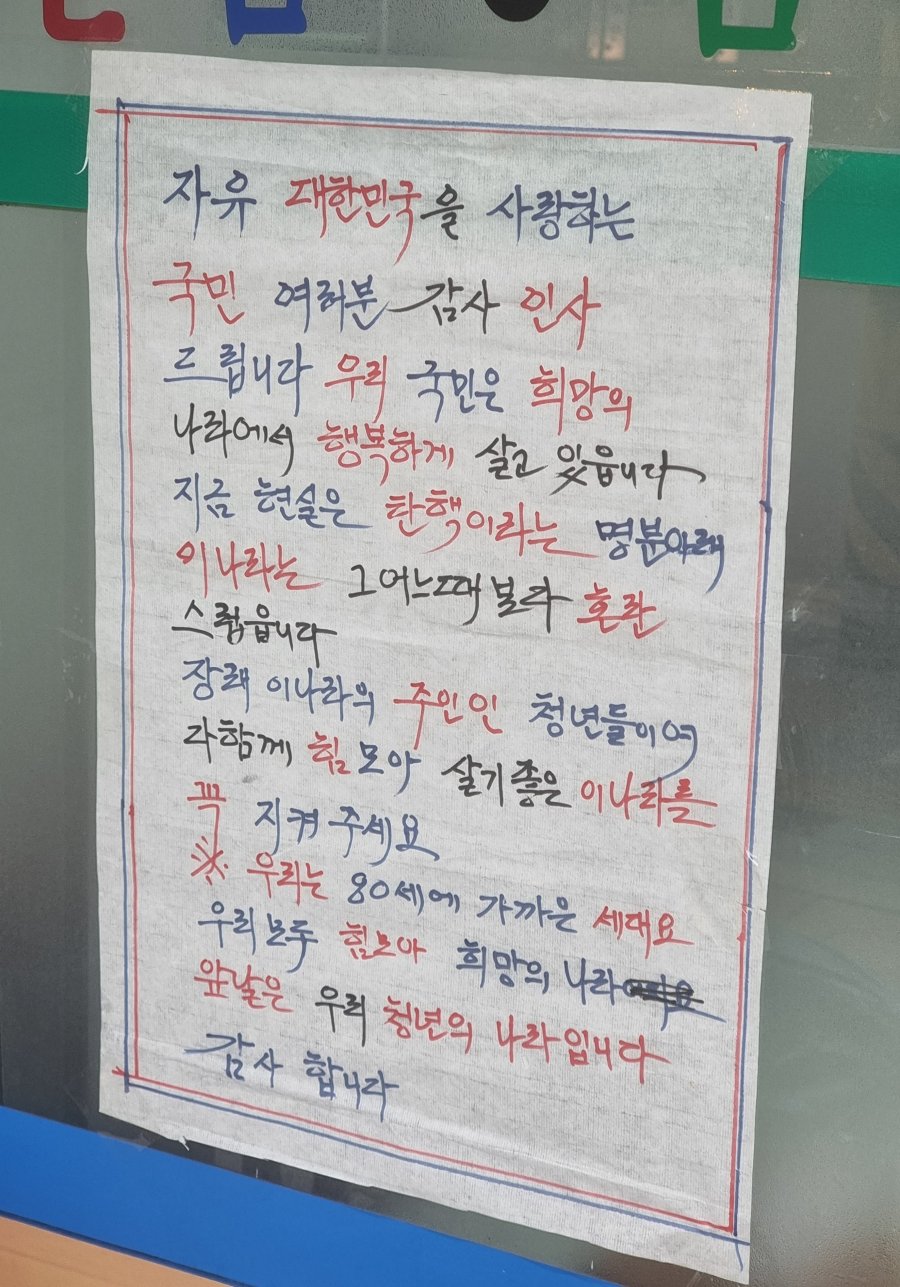 자유 대한민국을 사랑하는
국민 여러분 감사 인사
드립니다 우리 국민은 희망의
나라에서 행복하게 살고 있읍니다
지금 현실은 탄핵이라는 명분아래
이나라는 그어느때 보다 혼란
스럽읍니다
장래 이나라의 주인인 청년들이여
다함께 힘모아 살기좋은 이나라를
꼭 지켜주세요
※ 우리는 80세에 가까은 세대요
우리모두 힘모아 희망의 나라
앞날은 우리 청년의 나라입니다
감사 합니다